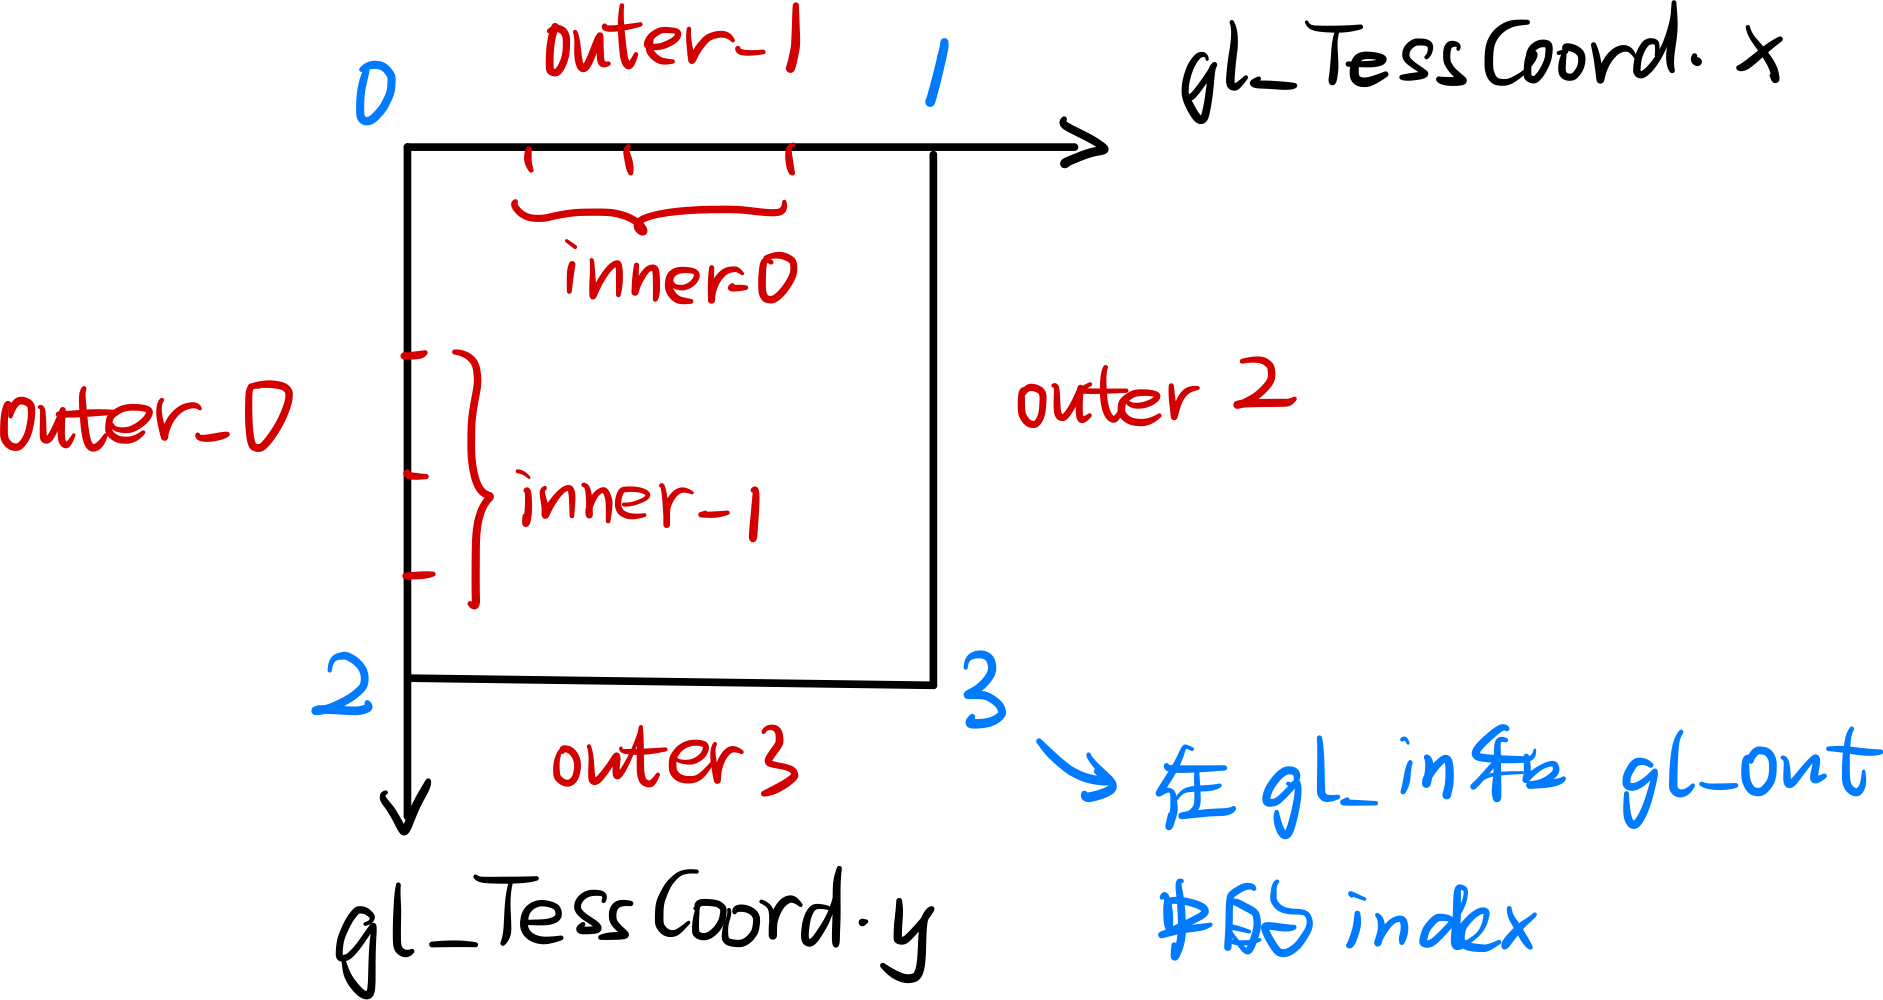 0
outer_1
1
gl_TessCoord.x
inner_0
outer_0
outer 2
inner_1
2
3
outer 3
在 gl_in和 gl_out
中的 index
gl_TessCoord.y